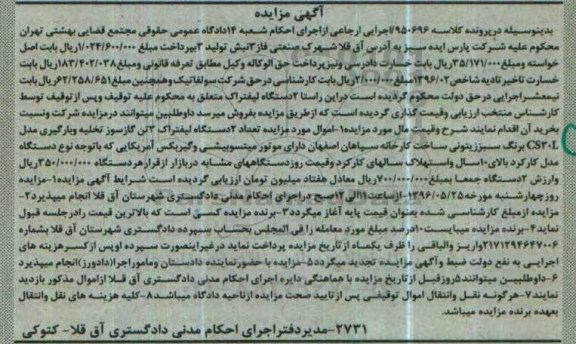 آگهی مزایده
بدینوسیله درپرونده کلاسه ۹۵۰۶۹۶اجرایی ارجاعی ازاجرای احکام شعبه ۱۴دادگاه عمومی حقوقی مجتمع قضایی بهشتی تهران
محکوم علیه شرکت پارس ایده سبز به آدرس آق قلا شهرک صنعتی فاز۲نبش تولید ۳بپرداخت مبلغ ۱/۰۲۴/۶۰۰/۰۰۰ریال بابت اصل
خواسته ومبلغ۳۵/۱۷۱/۰۰۰ریال بابت خسارت دادرسی ونیزپرداخت حق الوکاله وکیل مطابق تعرفه قانونی ومبلغ۱۸۳/۴۰۲/۰۳۸ریال بابت
خسارت تاخیر تادیه شاخص ۱۳۹۶/۰۲مبلغ۲/۰۰۰/۰۰۰ریال بابت کارشناسی درحق شرکت سولفاتیک وهمچنین مبلغ۶۲/۲۵۸/۶۵۱ریال بابت
نیمعشراجرایی درحق دولت محکوم گردیده است دراین راستا ۲دستگاه لیفتراک متعلق به محکوم علیه توقیف وپس ازتوقیف توسط
کارشناس منتخب ارزیابی وقیمت گذاری گردیده است که ازطریق مزایده بفروش میرسد داوطلبین میتوانند درمزایده شرکت ونسبت
بخرید آن اقدام نمایند شرح وقیمت مال مورد مزایده۱-اموال مورد مزایده تعداد ۲دستگاه لیفتراک ۳تن گازسوز تخلیه وبارگیری مدل
CS۳۰L برنگ سبززیتونی ساخت کارخانه سپاهان اصفهان دارای موتور میتسوبیشی وگیربکس آمریکایی که باتوجه نوع دستگاه
مدل کارکرد بالای۱۰سال واستهلاک سالهای کارکرد وقیمت روزدستگاههای مشابه دربازار ازقرارهردستگاه ۳۵۰/۰۰۰/۰۰۰ریال
وارزش ۲دستگاه جمعا بمبلغ۷۰۰/۰۰۰/۰۰۰ریال معادل هفتاد میلیون تومان ارزیابی گردیده است شرایط آگهی مزایده۱-مزایده
روزچهارشنبه مورخه۱۳۹۶/۰۵/۲۵ازساعت۱۱الی۱۲صبح دراجرای احکام مدنی دادگستری شهرستان آق قلا انجام میپذیرد۲-
مزایده ازمبلغ کارشناسی شده بعنوان قیمت پایه آغاز میگردد۳-برنده مزایده کسی است که بالاترین قیمت رادرجلسه قبول
نماید۴-برنده مزایده میبایست۱۰درصد مبلغ مورد معامله را فی المجلس بحساب سپرده دادگستری شهرستان آق قلا بشماره
۲۱۷۱۲۹۴۶۴۷۰۰۶واریز والباقی را ظرف یکماه ازتاریخ مزایده پرداخت نماید درغیراینصورت سپرده اوپس از کسرهزینه های
اجرایی به نفع دولت ضبط وآگهی مزایده تجدید میگردد۵-مزایده با حضورنماینده دادستان وماموراجرا(دادورز)انجام میپذیرد
۶-داوطلبین میتوانند۵روزقبل ازتاریخ مزایده با هماهنگی دایره اجرای احکام مدنی دادگستری آق قلا ازاموال مذکور بازدید
نمایند۷-هرگونه نقل وانتقال اموال توقیفی پس ازتایید صحت مزایده ازناحیه دادگاه میباشد۸-کلیه هزینه های نقل وانتقال
بعهده برنده مزایده میباشد.
۲۷۳۱-مدیردفتراجرای احکام مدنی دادگستری آق قلا- کتوکی